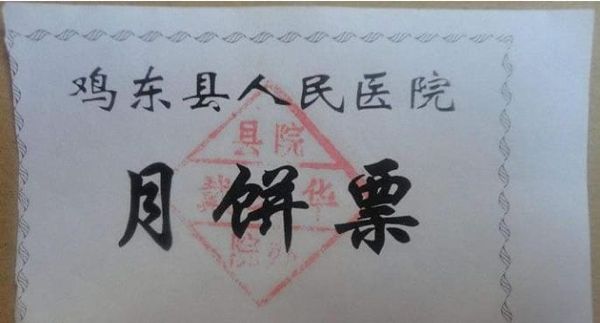 鸡东县人民医院
县院
华
月饼票
院